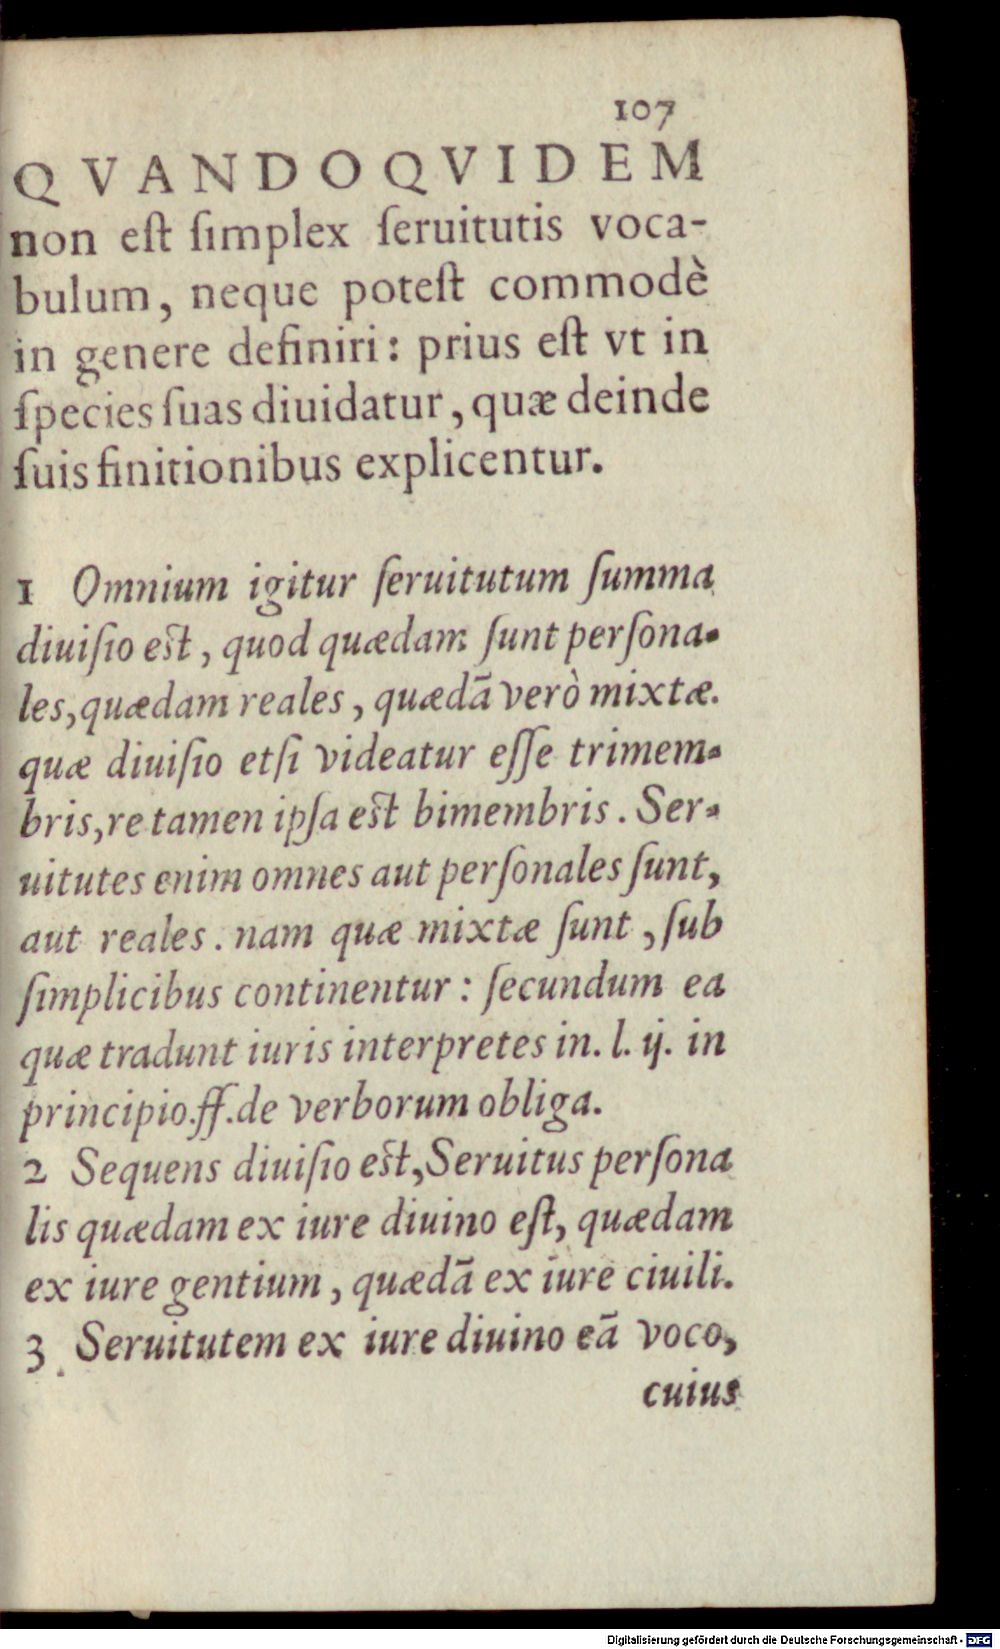 107
QVANDOQVIDEM
non eſt ſimplex ſeruitutis voca-
bulum, neque poteſt commodè
in genere definiri: prius eſt vt in
ſpecies ſuas diuidatur, quæ deinde
ſuis finitionibus explicentur.
1 Omnium igitur ſeruitutum ſumma
diuiſio eſt, quod quædam ſunt perſona-
les, quædam reales, quædã verò mixtæ.
quæ diuiſio etſi videatur eſſe trimem-
bris, re tamen ipſa eſt bimembris. Ser-
uitutes enim omnes aut perſonales ſunt,
aut reales. nam quæ mixtæ ſunt, ſub
ſimplicibus continentur: ſecundum ea
quæ tradunt iuris interpretes in. l. ij. in
principio.ff.de verborum obliga.
2 Sequens diuiſio eſt, Seruitus perſona
lis quædam ex iure diuino eſt, quædam
ex iure gentium, quædã ex iure ciuili.
3 Seruitutem ex iure diuino eã voco,
cuius
Digitalisierung gefördert durch die Deutsche Forschungsgemeinschaft - DFG